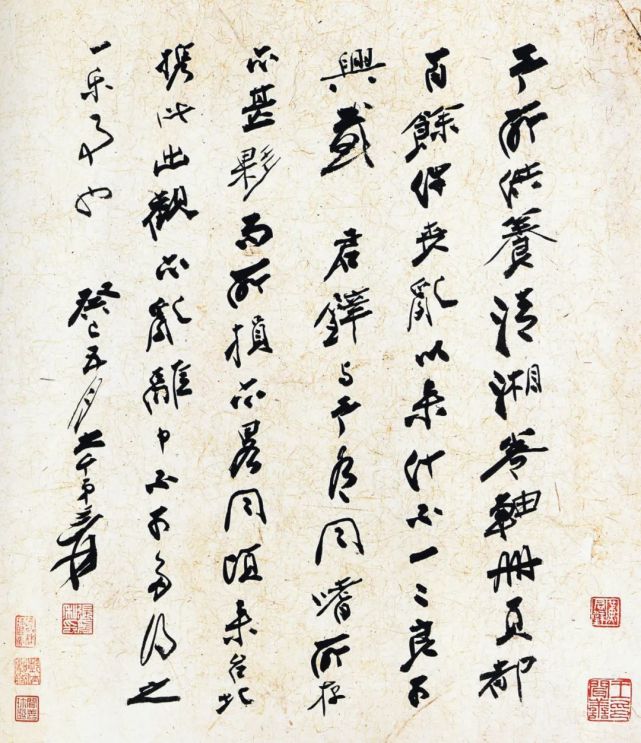 予所供養清湘卷軸冊頁都
百餘件喪亂以来什不一二良可
興感 君鐸与予有同嗜所存
亦甚夥而所損亦畧同頃来台北
携此出觀亦亂離中不可多得之
一乐事也 癸巳五月大千弟爰